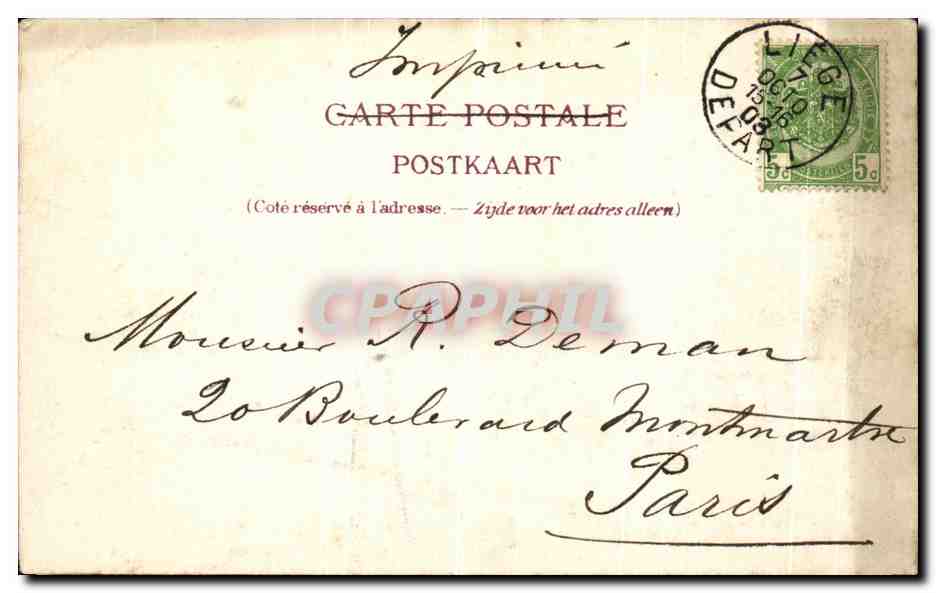 Imprimé
CARTE POSTALE
POSTKAART
(Coté réservé à l'adresse. — Zijde voor het adres alleen)
LIEGE
7
OCTO
15-16
03
DEPART
5c 5c
CPAPHIL
Monsieur R. Deman
20 Boulevard Montmartre
Paris